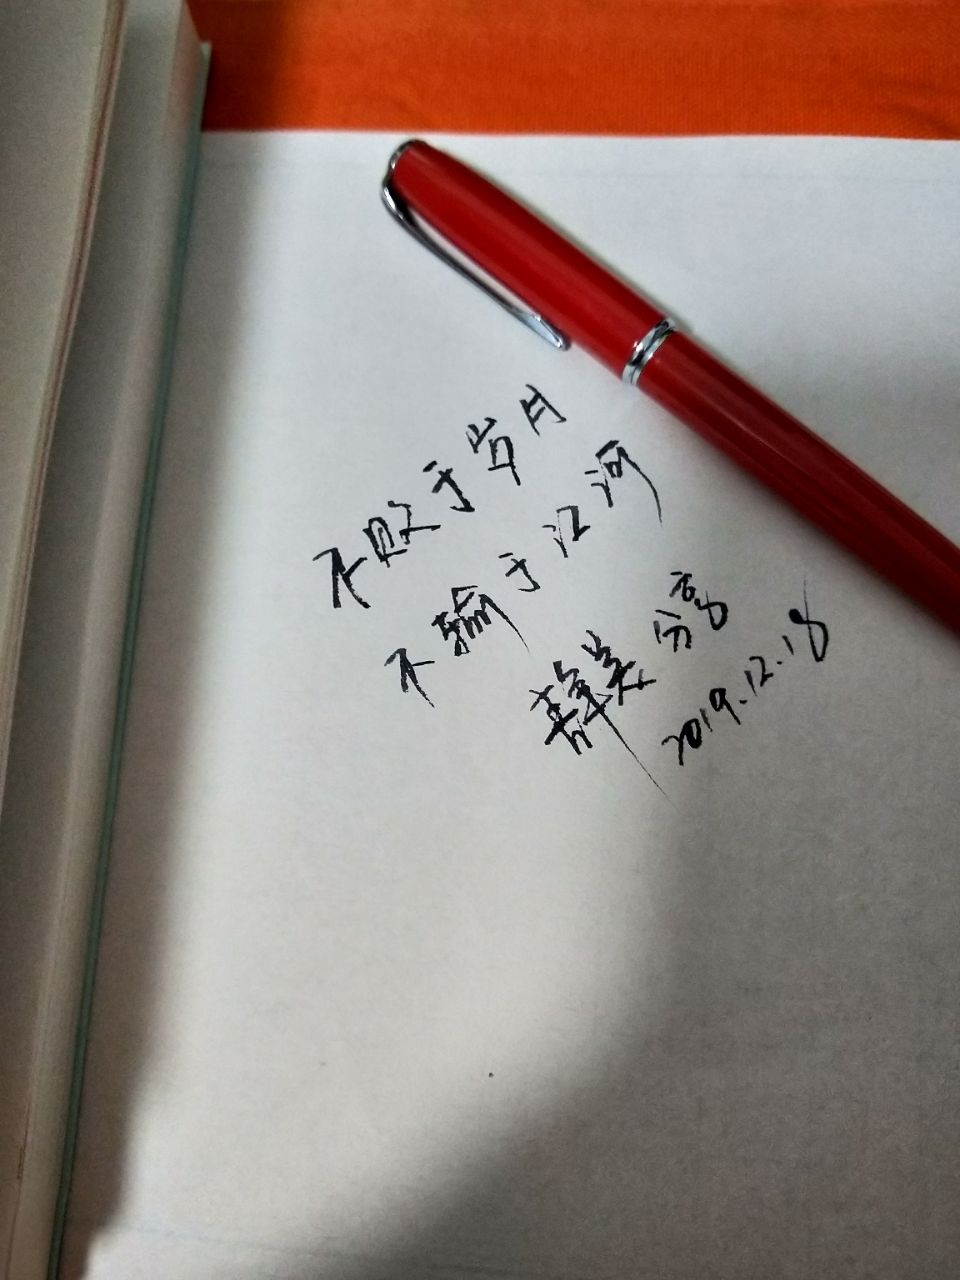 不败于岁月
不输于江河
静美分享
2019.12.18